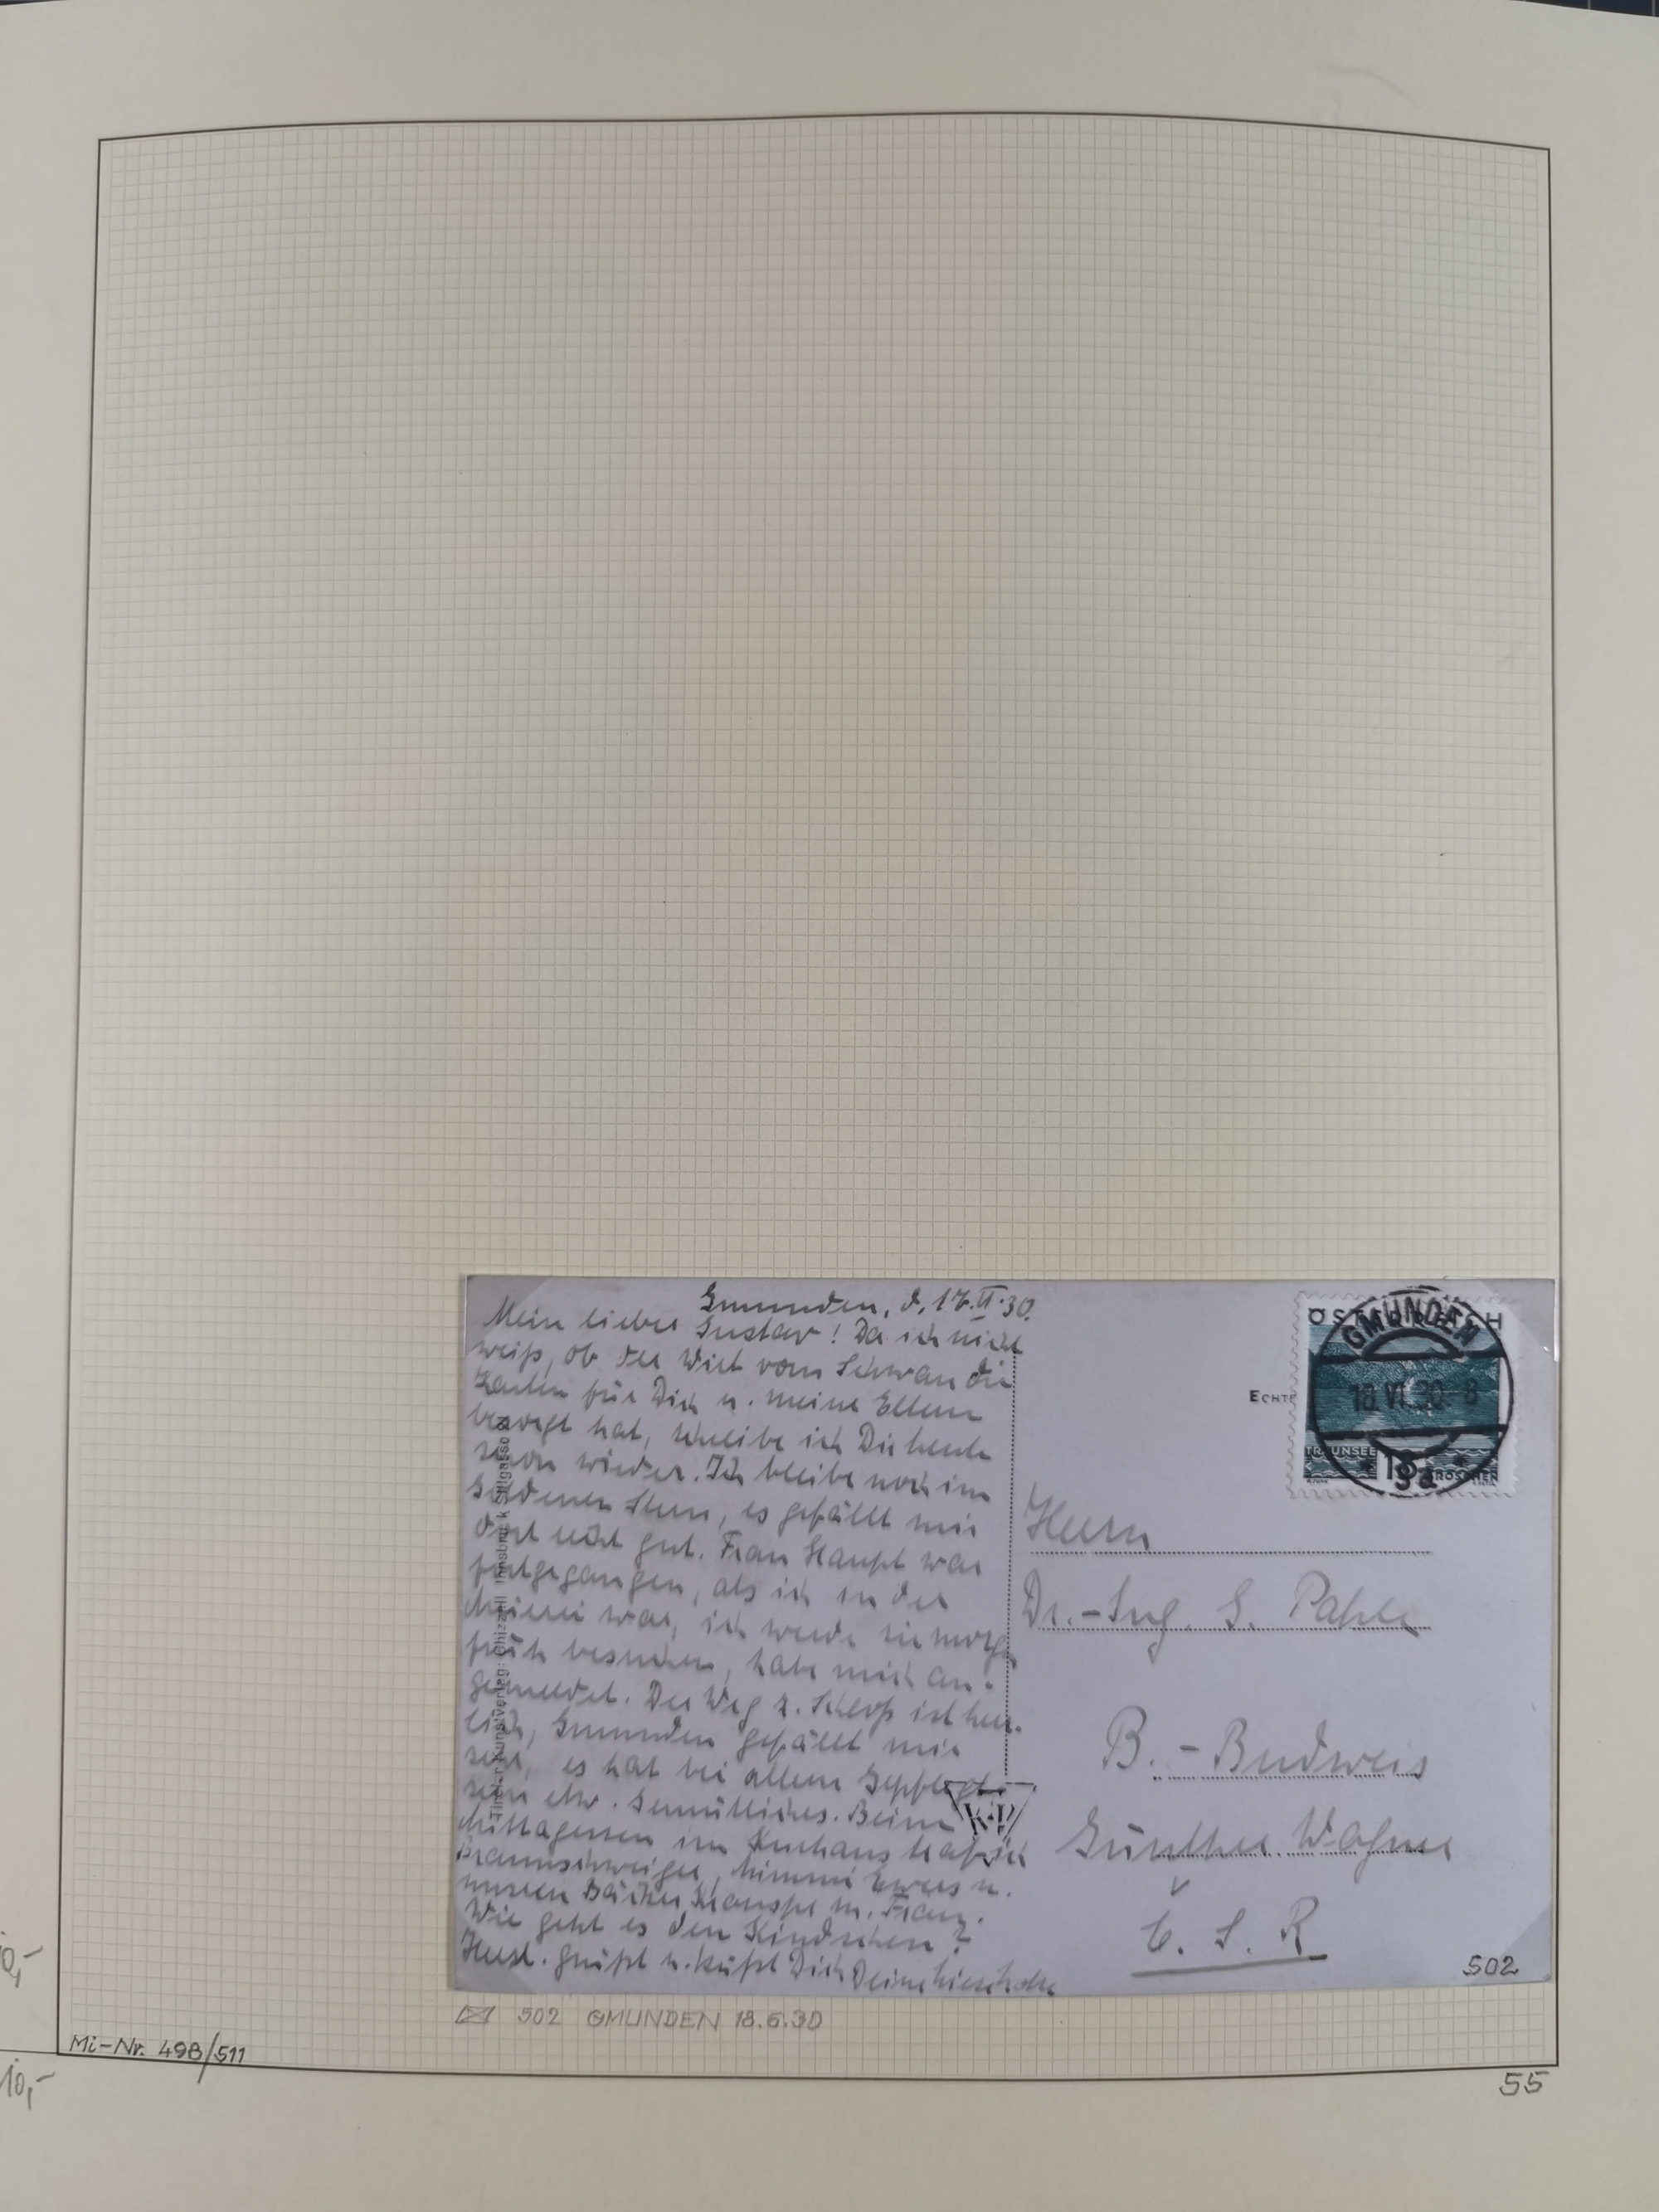 Gmunden, d. 17.VI.30.
Mein lieber Gustav! Da ich nicht
weiß, ob der Wirt vom Schwan die
Karten für Dich u. meine Eltern
besorgt hat, schreibe ich Dir heute
schon wieder. Ich bleibe noch im
goldenen Stern, es gefällt mir
dort recht gut. Frau Haupt war
fortgegangen, als ich in der
war, ich werde sie morgen
früh besuchen, habe mich an-
gemeldet. Der Weg z. Schloß ist herr-
lich, Gmunden gefällt mir
sehr, es hat bei allem Gepflegt-
sein etw. Gemütliches. Beim
Mittagessen im Kurhaus traf ich
Braunschweiger, u.
unseren Bäcker m. Frau.
Wie geht es den Kindchen?
Herzl. grüßt u. küßt Dich Deine
Tiroler Kunstverlag: Chizzali Innsbruck Sillgasse
K
ECHTE
ÖSTERREICH
GMUNDEN
18.VI.30-8
TRAUNSEE
GROSCHEN
3a
Herrn
Dr.-Ing. G. Pahle
B.-Budweis
Günther Wagner
Č. S. R
502
502 GMUNDEN 18.6.30
Mi-Nr. 498/511
0,-
10,-
55